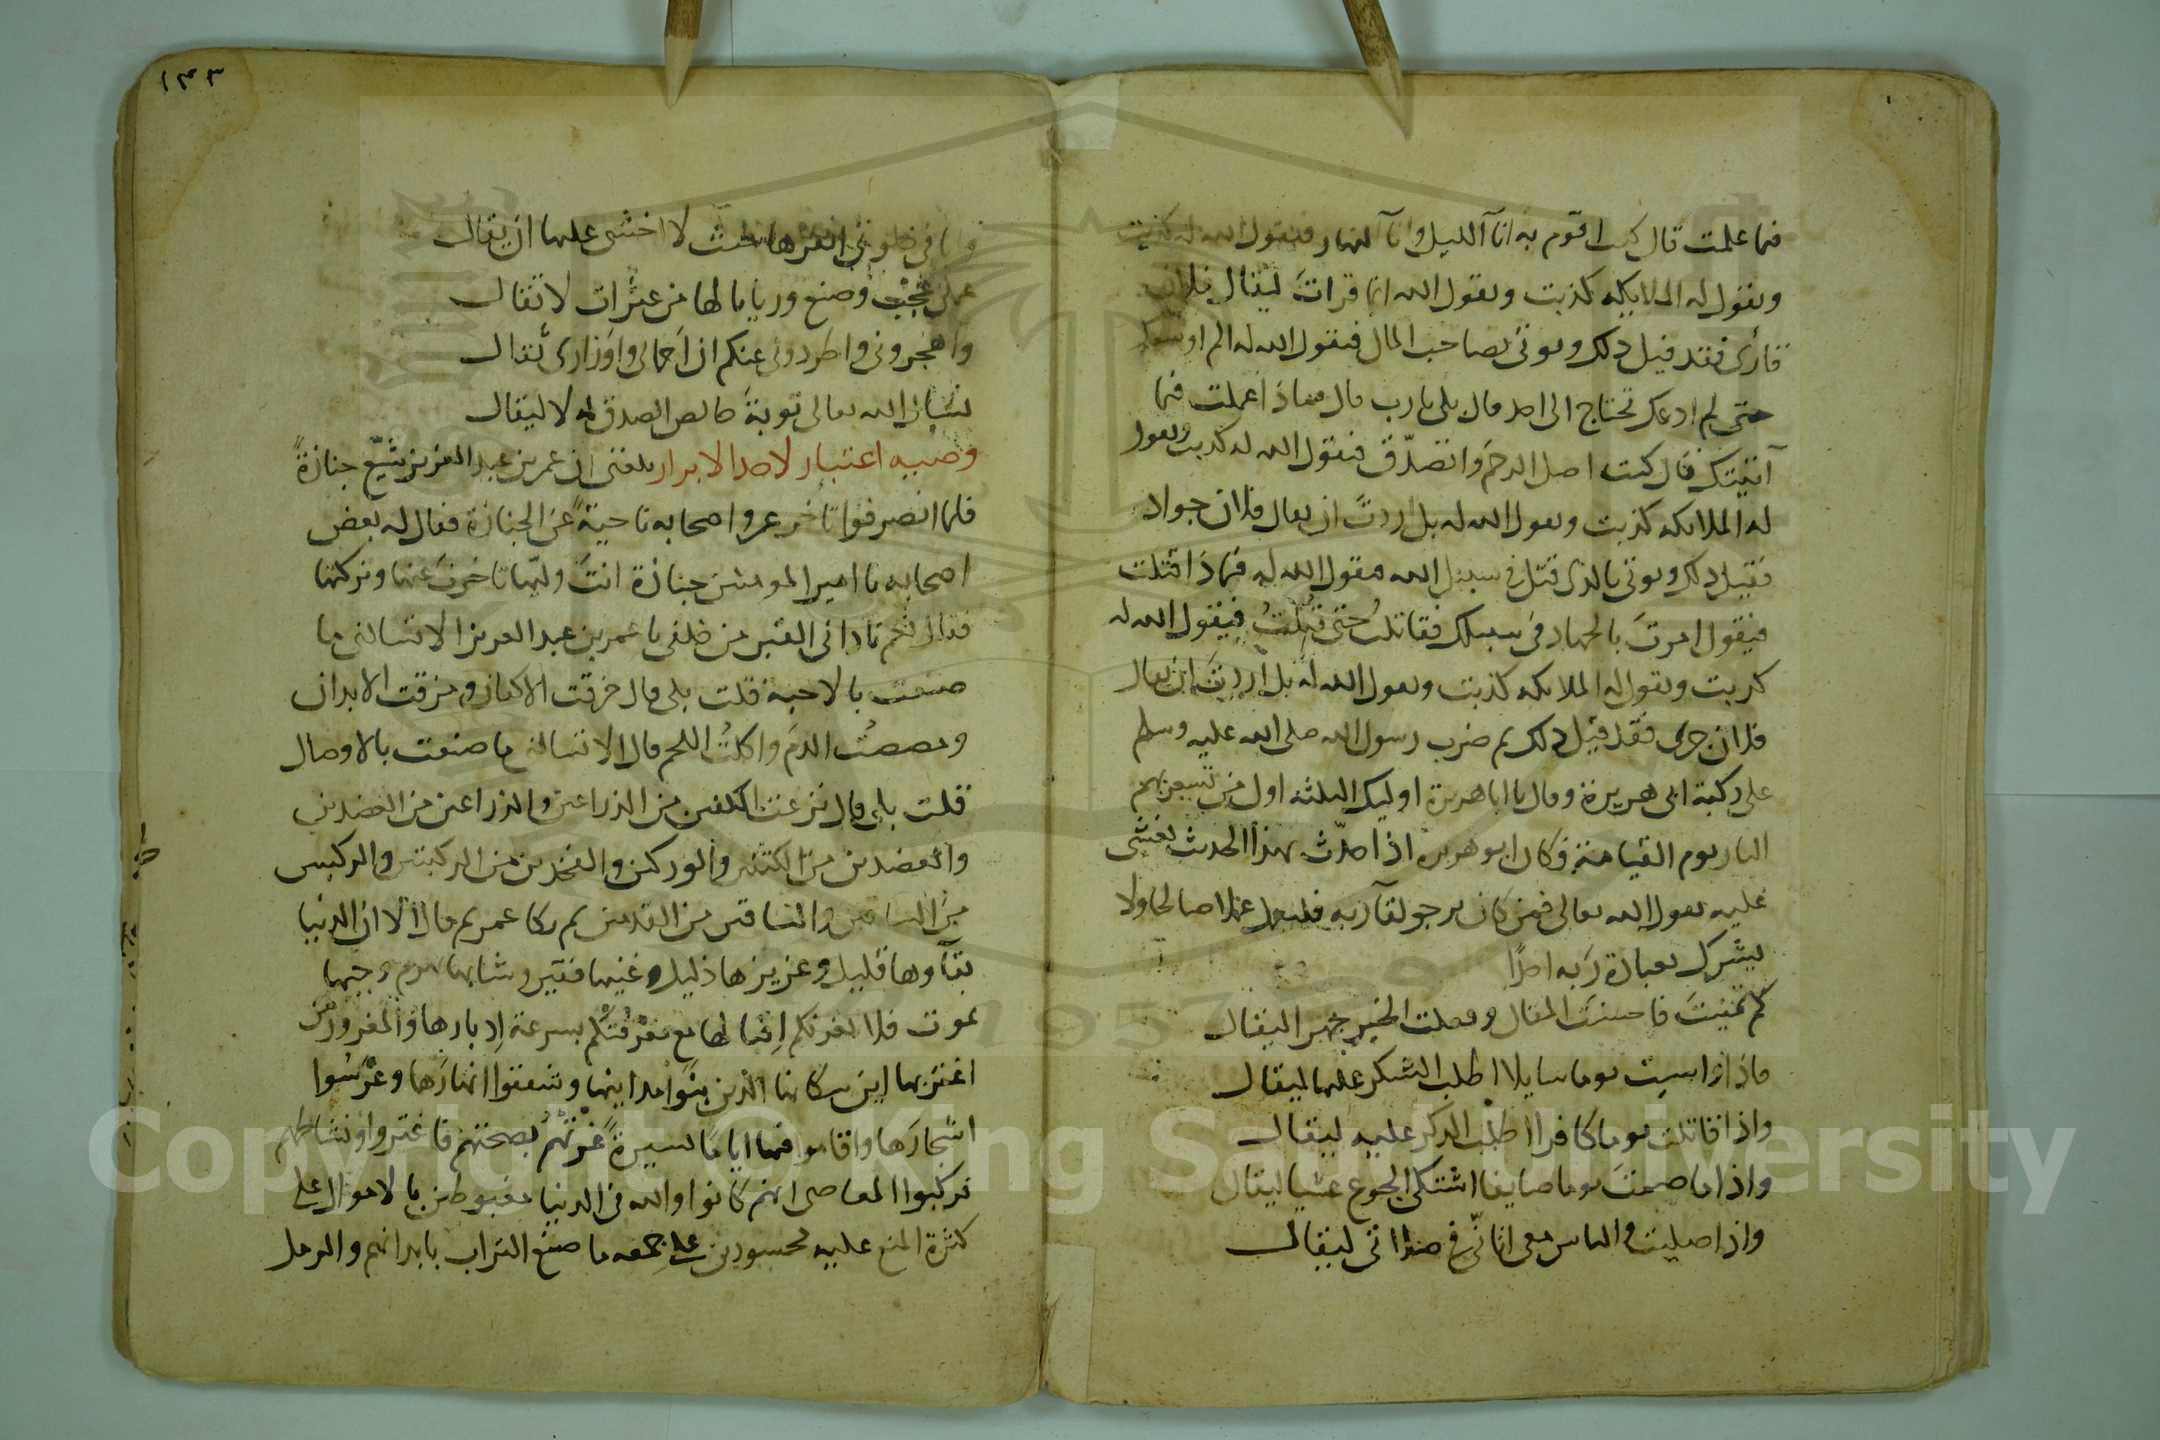 فيما علمت قال كنت اقوم به اناآ الليل وانآ النهار فيقول الله له كذبت
ويقول له الملايكة كذبت ويقول الله انما قرات ليقال فلان
قارئ فقد قيل ذلك ويوتى بصاحب المال فيقول الله له الم اوسع
حتى لم ادعك تحتاج الى احد قال بلى يارب قال فماذا عملت فيما
آتيتك قال كنت اصل الرحم واتصدّق فيقول الله له كذبت ويقول
له الملائكة كذبت ويقول الله له بل اردتَ ان يقال فلان جواد
فقيل ذلك ويوتى بالذى قتل فى سبيل الله فيقول الله له فيماذا قتلت
فيقول امرتَ بالجهاد فى سبيلك فقاتلتُ حتى قُتلتُ فيقول الله له
كذبت ويقول له الملائكة كذبت ويقول الله له بل اردتَ ان يقال
فلان جرى فقد قيل ذلك ثم ضرب رسول الله صلى الله عليه وسلم
على ركبة ابى هريرة وقال يا ابا هريرة اوليك الثلثة اول من تسعر بهم
النار يوم القيامة وكان ابو هريرة اذا حدّث بهذا الحديث يغشى
عليه يقول الله تعالى فمن كان يرجو لقآ ربه فليعمل عملا صالحا ولا
يشرك بعبادة ربه احدًا
كم تمنيتَ فاحسنتَ المقال وفعلت الخير جهرا ليقال
واذا يوما سايلا اطلب الشكر عليها ليقال
واذا قاتلت يوما كافرا اطلب الذكر عليه ليقال
واذا ما صمتَ يوما صايفا اشتكى الجوع عشيا ليقال
واذا صليت والناس معى اتانّى فى صلاتى ليقال
١٤٣
لا اخشى عليها ان يقال
عملى عُجْبٌ وصنع وريا يا لها من عثرات لا تقال
واهجرونى واطردونى عنكم ان احمالى واوزارى ثقال
نسأل الله تعالى توبةً خالص الصدق له لا ليقال
وصيه اعتبار لاحد الابرار بلغنى ان عمر بن عبد العزيز شيّع جنازةً
فلما انصرفوا تأخر عمر واصحابه ناحيةً عن الجنازة فقال له بعض
اصحابه يا امير المومنين جنازة انتَ وليّها تاخرتَ عنها وتركتها
فقال نعم نادانى القبر من خلفى يا عمر بن عبد العزيز الا تسالنى ما
صنعت بالاحبة قلت بلى قال خرقت الاكفان ومزقت الابدان
ومصصتُ الدمَ واكلتُ اللحم قال الا تسالنى ما صنعت بالاوصال
قلت بلى قال نزعت الكفين من الذراعين والذراعين من العضدين
والعضدين من الكتفين والوركين والفخدين من الركبتين والركبتين
من الساقين والساقين من القدمين ثم بكا عمر ثم قال الا ان الدنيا
بقآوها قليل وعزيزها ذليل وغنيها فقير وشابها يهرم وحيها
يموت فلا يغرنكم اقبالها مع معرفتكم بسرعة ادبارها والمغرور من
اغتر بها اين سكانها الذين بنوا مداينها وشققوا انهارَها وغَرَسُوا
اشجارَها واقاموا فيها اياما يسيرةً غرّتهُم بصحتهم فاغتروا ونشاطهم
فركبوا المعاصى انهم كانوا والله فى الدنيا مغبوطين بالاموال على
كثرة المنع عليه محسودين على جمعه ما صنع التراب بابدانهم والرمل